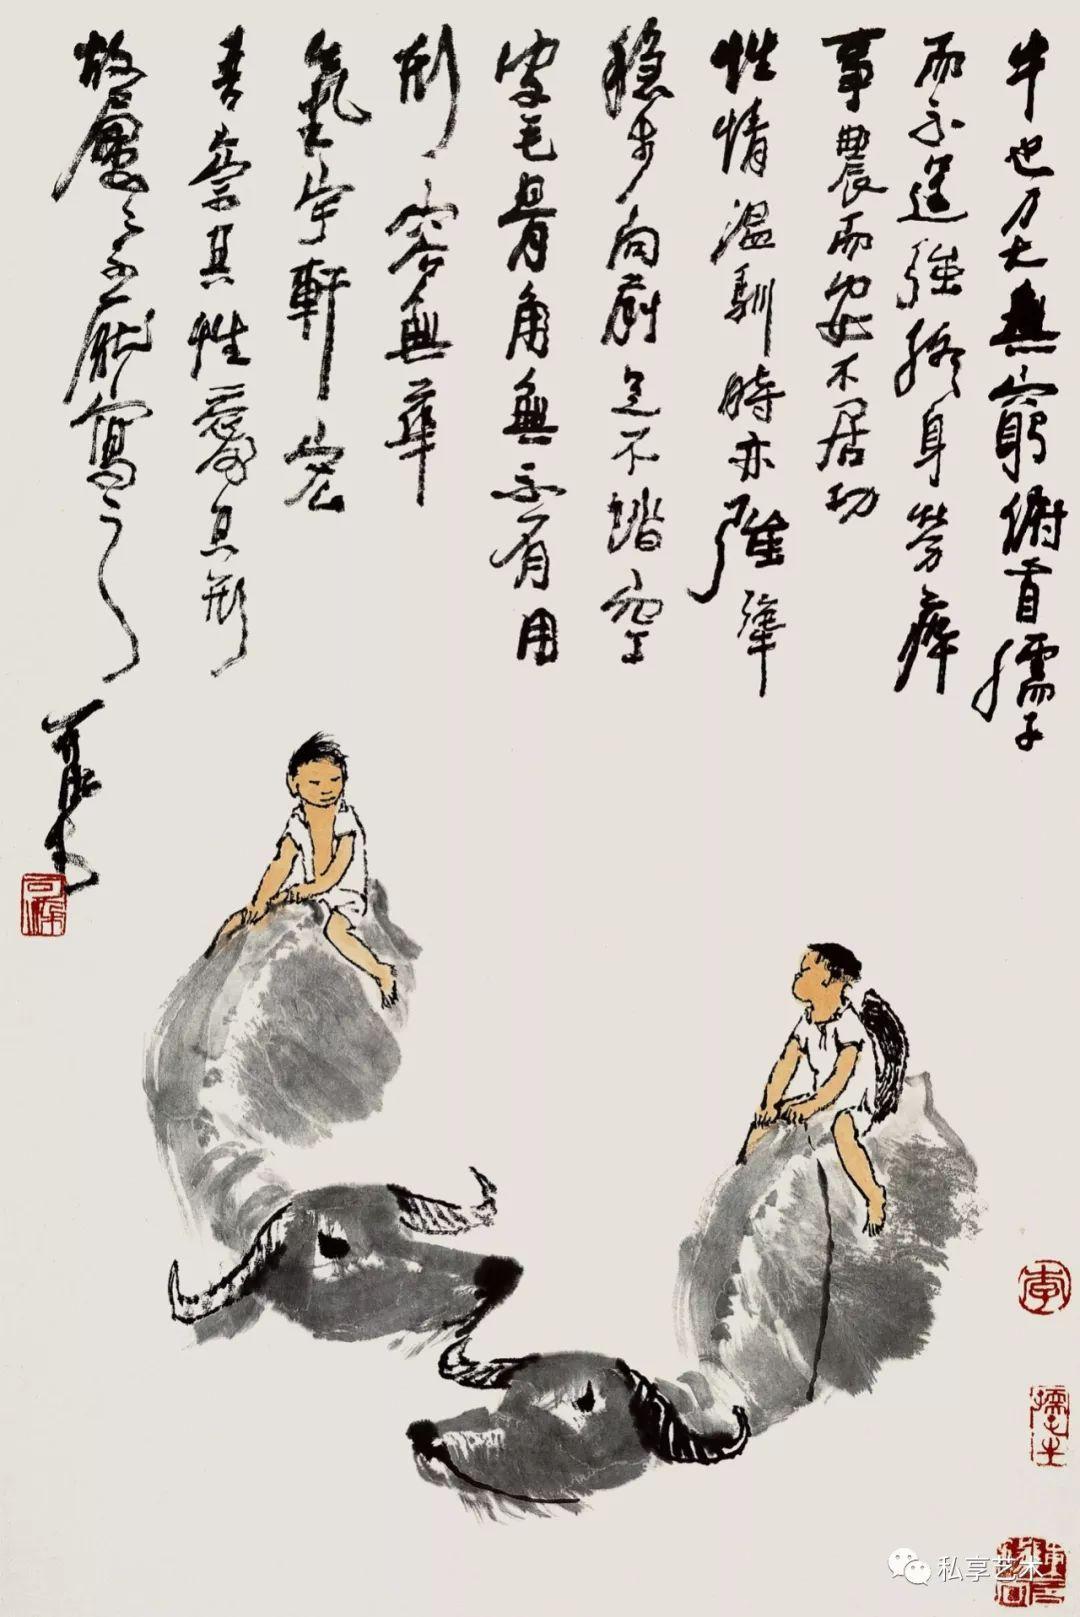 牛也力大無窮俯首孺子
而不逞强終身勞瘁
事農而安不居功
性情温馴時亦强犟
穩步向前足不踏空
皮毛骨角無不有用
形容無華
氣宇軒宏
吾崇其性愛其形
故屢屢不厭寫之
可染
可染
李
孺牛
私享艺术